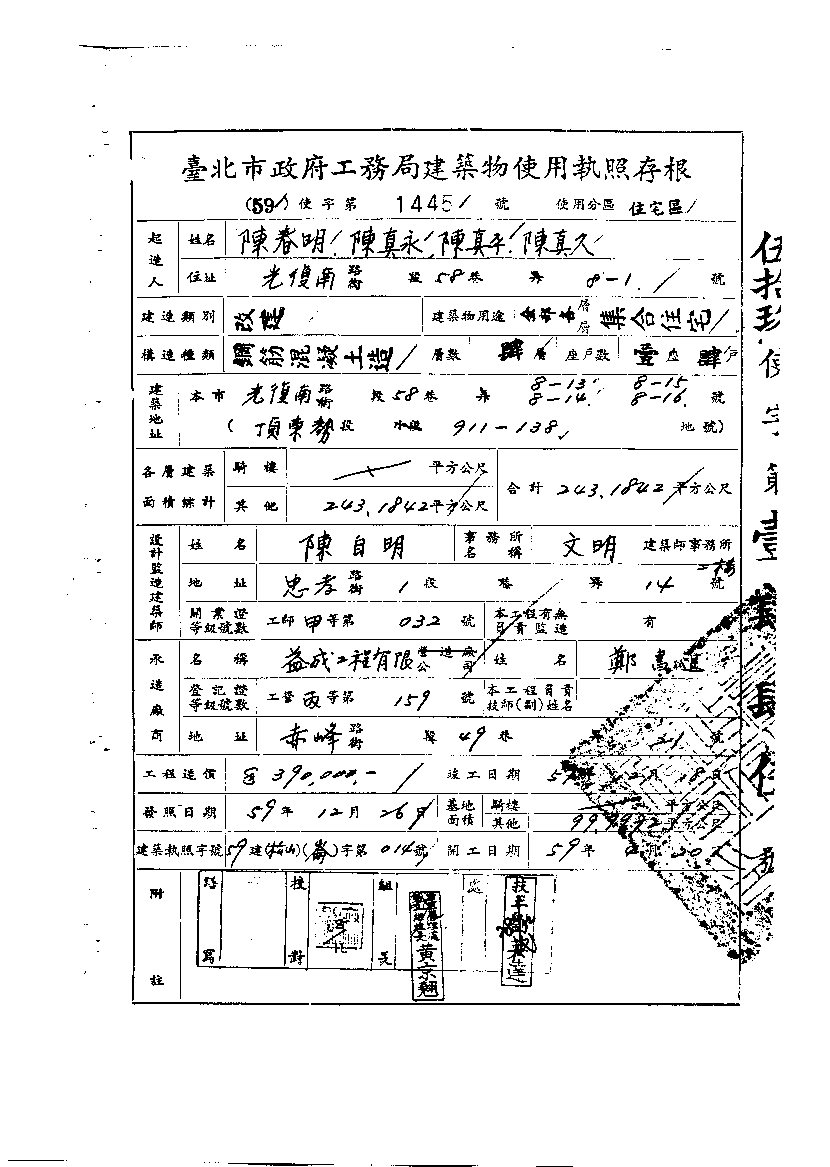 臺北市政府工務局建築物使用執照存根
(59)使字第 1445 號 使用分區 住宅區
起造人 姓名 陳春明 陳真永 陳真平 陳真久
住址 光復南路街 段 58 巷 弄 8-1 號
建造類別 改建 建築物用途 層 層 集合住宅
構造種類 鋼筋混凝土造 層數 肆 層 座戶數 壹 座 肆 戶
建築地址 本市 光復南路街 段 58 巷 弄 8-13 8-14 8-15 8-16 號
(頂東勢段 小段 911-138 地號)
各層建築面積綜計 騎樓 平方公尺 合計 243.1842 平方公尺
其他 243.1842 平方公尺
設計監造建築師 姓名 陳自明 事務所名稱 文明 建築師事務所
地址 忠孝路街 1 段 巷 弄 14 號 二樓
開業證等級號數 工師 甲 等第 032 號 本工程有無負責監造 有
承造廠商 名稱 益成工程有限 營造廠公司 姓名 鄭
登記證等級號數 工營 丙 等第 159 號 本工程負責技師(副)姓名
地址 赤峰路街 段 49 巷 弄 21 號
工程造價 390,000.- 竣工日期 59年 12月 18日
發照日期 59年 12月 26日 基地面積 騎樓 平方公尺
其他 平方公尺
建築執照字號 59建(松山)(崙)字第 014號 開工日期 59年 月 20
附註 繕寫 校對 組長 處 技正
黃京翹
伍拾玖 使字第壹